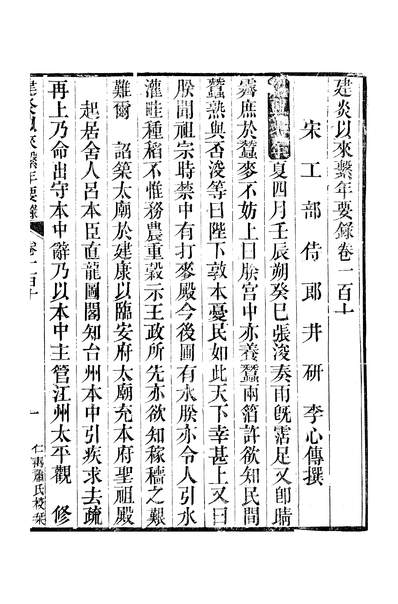 建炎以來繫年要錄卷一百十
宋工部侍郎井研李心傳撰
紹興七年夏四月壬辰朔癸巳張浚奏雨旣霑足又卽晴
霽庶於蠶麥不妨上曰朕宮中亦養蠶兩箔許欲知民間
蠶熟與否浚等曰陛下敦本憂民如此天下幸甚上又曰
朕聞祖宗時禁中有打麥殿今後圃有水朕亦令人引水
灌畦種稻不惟務農重穀示王政所先亦欲知稼穡之艱
難爾 詔築太廟於建康以臨安府太廟充本府聖祖殿
起居舍人呂本中直龍圖閣知台州本中引疾求去疏
再上乃命出守本中辭乃以本中主管江州太平觀 修
建炎以來繫年要錄 卷一百十 一 仁壽蕭氏校栞